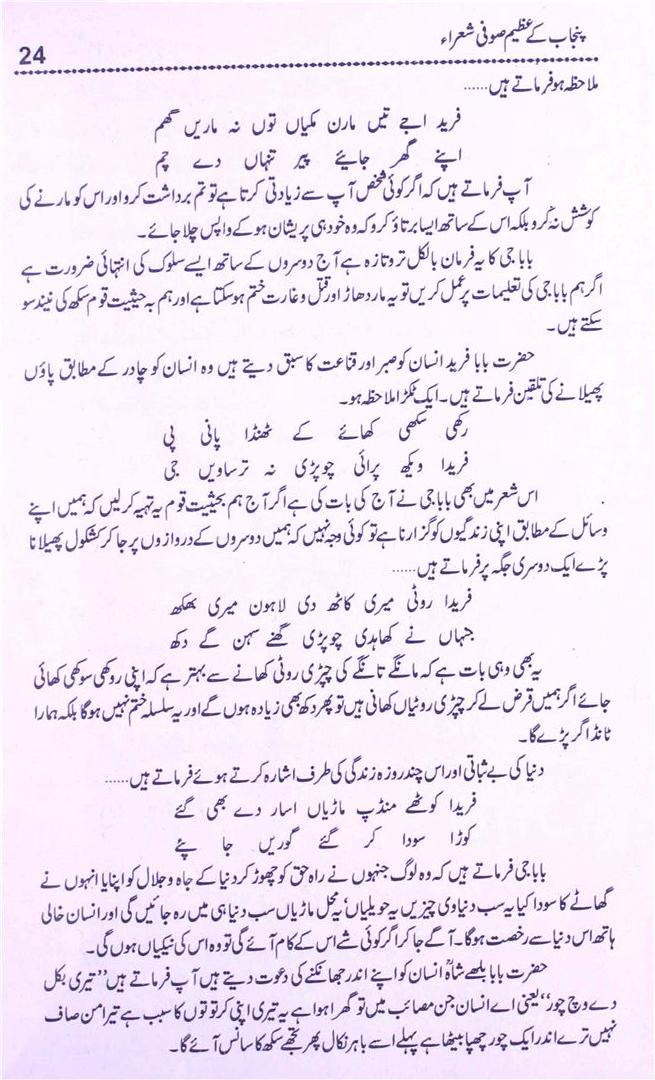 پنجاب کے عظیم صوفی شعراء
24
ملاحظہ ہو فرماتے ہیں......
فرید اجے تیں مارن مکیاں توں نہ ماریں گھم
اپنے گھر جایئے پیر تنہاں دے چم
آپ فرماتے ہیں کہ اگر کوئی شخص آپ سے زیادتی کرتا ہے تو تم برداشت کرو اور اس کو مارنے کی
کوشش نہ کرو بلکہ اس کے ساتھ ایسا برتاؤ کرو کہ وہ خود ہی پریشان ہو کے واپس چلا جائے۔
بابا جی کا یہ فرمان بالکل تر و تازہ ہے آج دوسروں کے ساتھ ایسے سلوک کی انتہائی ضرورت ہے
اگر ہم بابا جی کی تعلیمات پر عمل کریں تو یہ مار دھاڑ اور قتل و غارت ختم ہو سکتا ہے اور ہم بہ حیثیت قوم سکھ کی نیند سو
سکتے ہیں۔
حضرت بابا فرید انسان کو صبر اور قناعت کا سبق دیتے ہیں وہ انسان کو چادر کے مطابق پاؤں
پھیلانے کی تلقین فرماتے ہیں۔ ایک ٹکڑا ملاحظہ ہو۔
رکھی سکھی کھائے کے ٹھنڈا پانی پی
فریدا ویکھ پرائی چوپڑی نہ ترساویں جی
اس شعر میں بھی بابا جی نے آج کی بات کی ہے اگر آج ہم بحیثیت قوم یہ تہیہ کر لیں کہ ہمیں اپنے
وسائل کے مطابق اپنی زندگیوں کو گزارنا ہے تو کوئی وجہ نہیں کہ ہمیں دوسروں کے دروازوں پر جا کر کشکول پھیلانا
پڑے ایک دوسری جگہ پر فرماتے ہیں......
فریدا روٹی میری کاٹھ دی لاہون میری بھکھ
جنہاں نے کھاہدی چوپڑی گھنے سہن گے دکھ
یہ بھی وہی بات ہے کہ مانگے تانگے کی چپڑی روٹی کھانے سے بہتر ہے کہ اپنی روکھی سوکھی کھائی
جائے اگر ہمیں قرض لے کر چپڑی روٹیاں کھانی ہیں تو پھر دکھ بھی زیادہ ہوں گے اور یہ سلسلہ ختم نہیں ہوگا بلکہ ہمارا
ٹانڈا گر پڑے گا۔
دنیا کی بے ثباتی اور اس چند روزہ زندگی کی طرف اشارہ کرتے ہوئے فرماتے ہیں......
فریدا کوٹھے منڈپ ماڑیاں اسار دے بھی گئے
کوڑا سودا کر گئے گوریں جا پئے
بابا جی فرماتے ہیں کہ وہ لوگ جنہوں نے راہ حق کو چھوڑ کر دنیا کے جاہ و جلال کو اپنایا انہوں نے
گھاٹے کا سودا کیا یہ سب دنیاوی چیزیں یہ حویلیاں‘ یہ محل ماڑیاں سب دنیا ہی میں رہ جائیں گی اور انسان خالی
ہاتھ اس دنیا سے رخصت ہوگا۔ آگے جا کر اگر کوئی شے اس کے کام آئے گی تو وہ اس کی نیکیاں ہوں گی۔
حضرت بابا بلھے شاہؒ انسان کو اپنے اندر جھانکنے کی دعوت دیتے ہیں آپ فرماتے ہیں ’’تیری بکل
دے وچ چور‘‘ یعنی اے انسان جن مصائب میں تو گھرا ہوا ہے یہ تیری اپنی کرتوتوں کا سبب ہے تیرا من صاف
نہیں ترے اندر ایک چور چھپا بیٹھا ہے پہلے اسے باہر نکال پھر تجھے سکھ کا سانس آئے گا۔